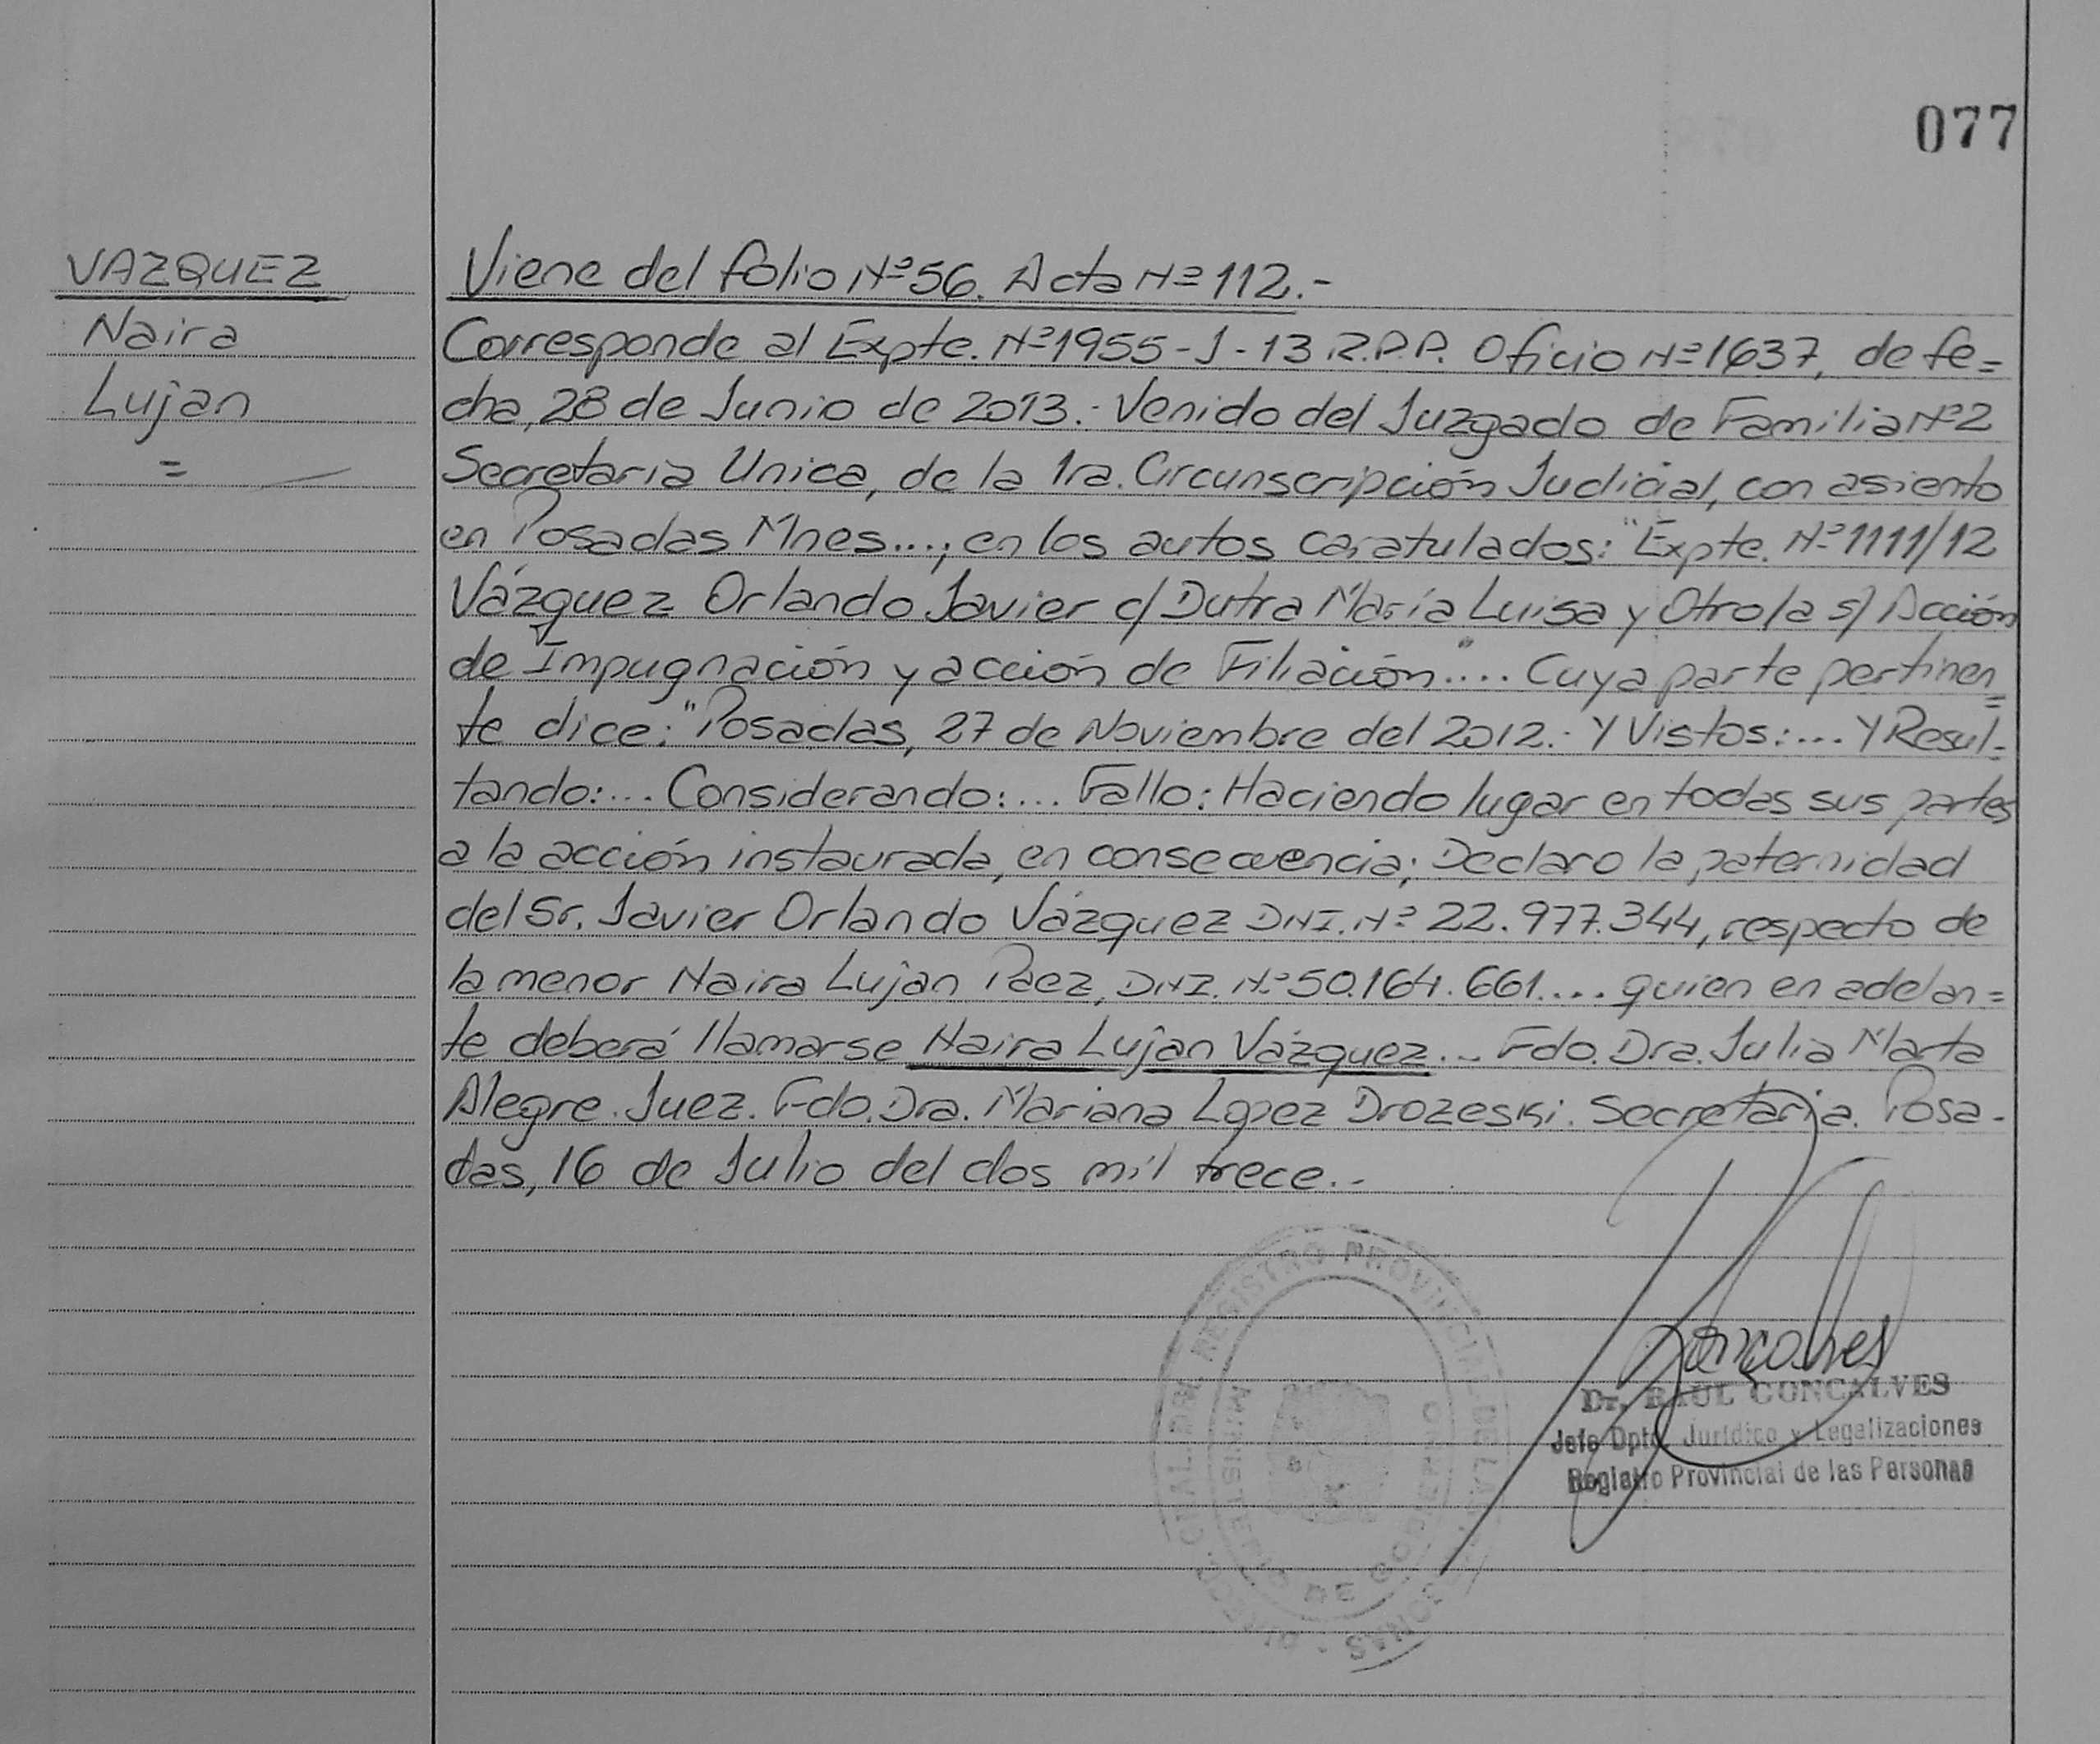 077
VAZQUEZ
Naira
Lujan
=
Viene del folio Nº 56. Acta Nº 112.-
Corresponde al Expte. Nº 1955-J-13 R.P.P. Oficio Nº 1637, de fe=
cha, 28 de Junio de 2013.- Venido del Juzgado de Familia Nº 2
Secretaria Unica, de la 1ra. Circunscripción Judicial, con asiento
en Posadas Mnes...; en los autos caratulados: "Expte. Nº 1111/12
Vázquez Orlando Javier c/ Dutra María Luisa y Otro/a s/ Acción
de Impugnación y acción de Filiación".... Cuya parte pertinen=
te dice: "Posadas, 27 de Noviembre del 2012.- Y Vistos:... Y Resul-
tando:... Considerando:... Fallo: Haciendo lugar en todas sus partes
a la acción instaurada, en consecuencia; Declaro la paternidad
del Sr. Javier Orlando Vázquez DNI. Nº 22.977.344, respecto de
la menor Naira Lujan Paez, DNI. Nº 50.164.661.... quien en adelan=
te deberá llamarse Naira Lujan Vázquez.- Fdo. Dra. Julia Marta
Alegre. Juez. Fdo. Dra. Mariana Lopez Drozeski. Secretaria. Posa-
das, 16 de Julio del dos mil trece.-
Goncalves
Dr. RAUL GONCALVES
Jefe Dpto. Jurídico y Legalizaciones
Registro Provincial de las Personas
REGISTRO PROVINCIAL DE LAS
MINISTERIO DE GOBIERNO